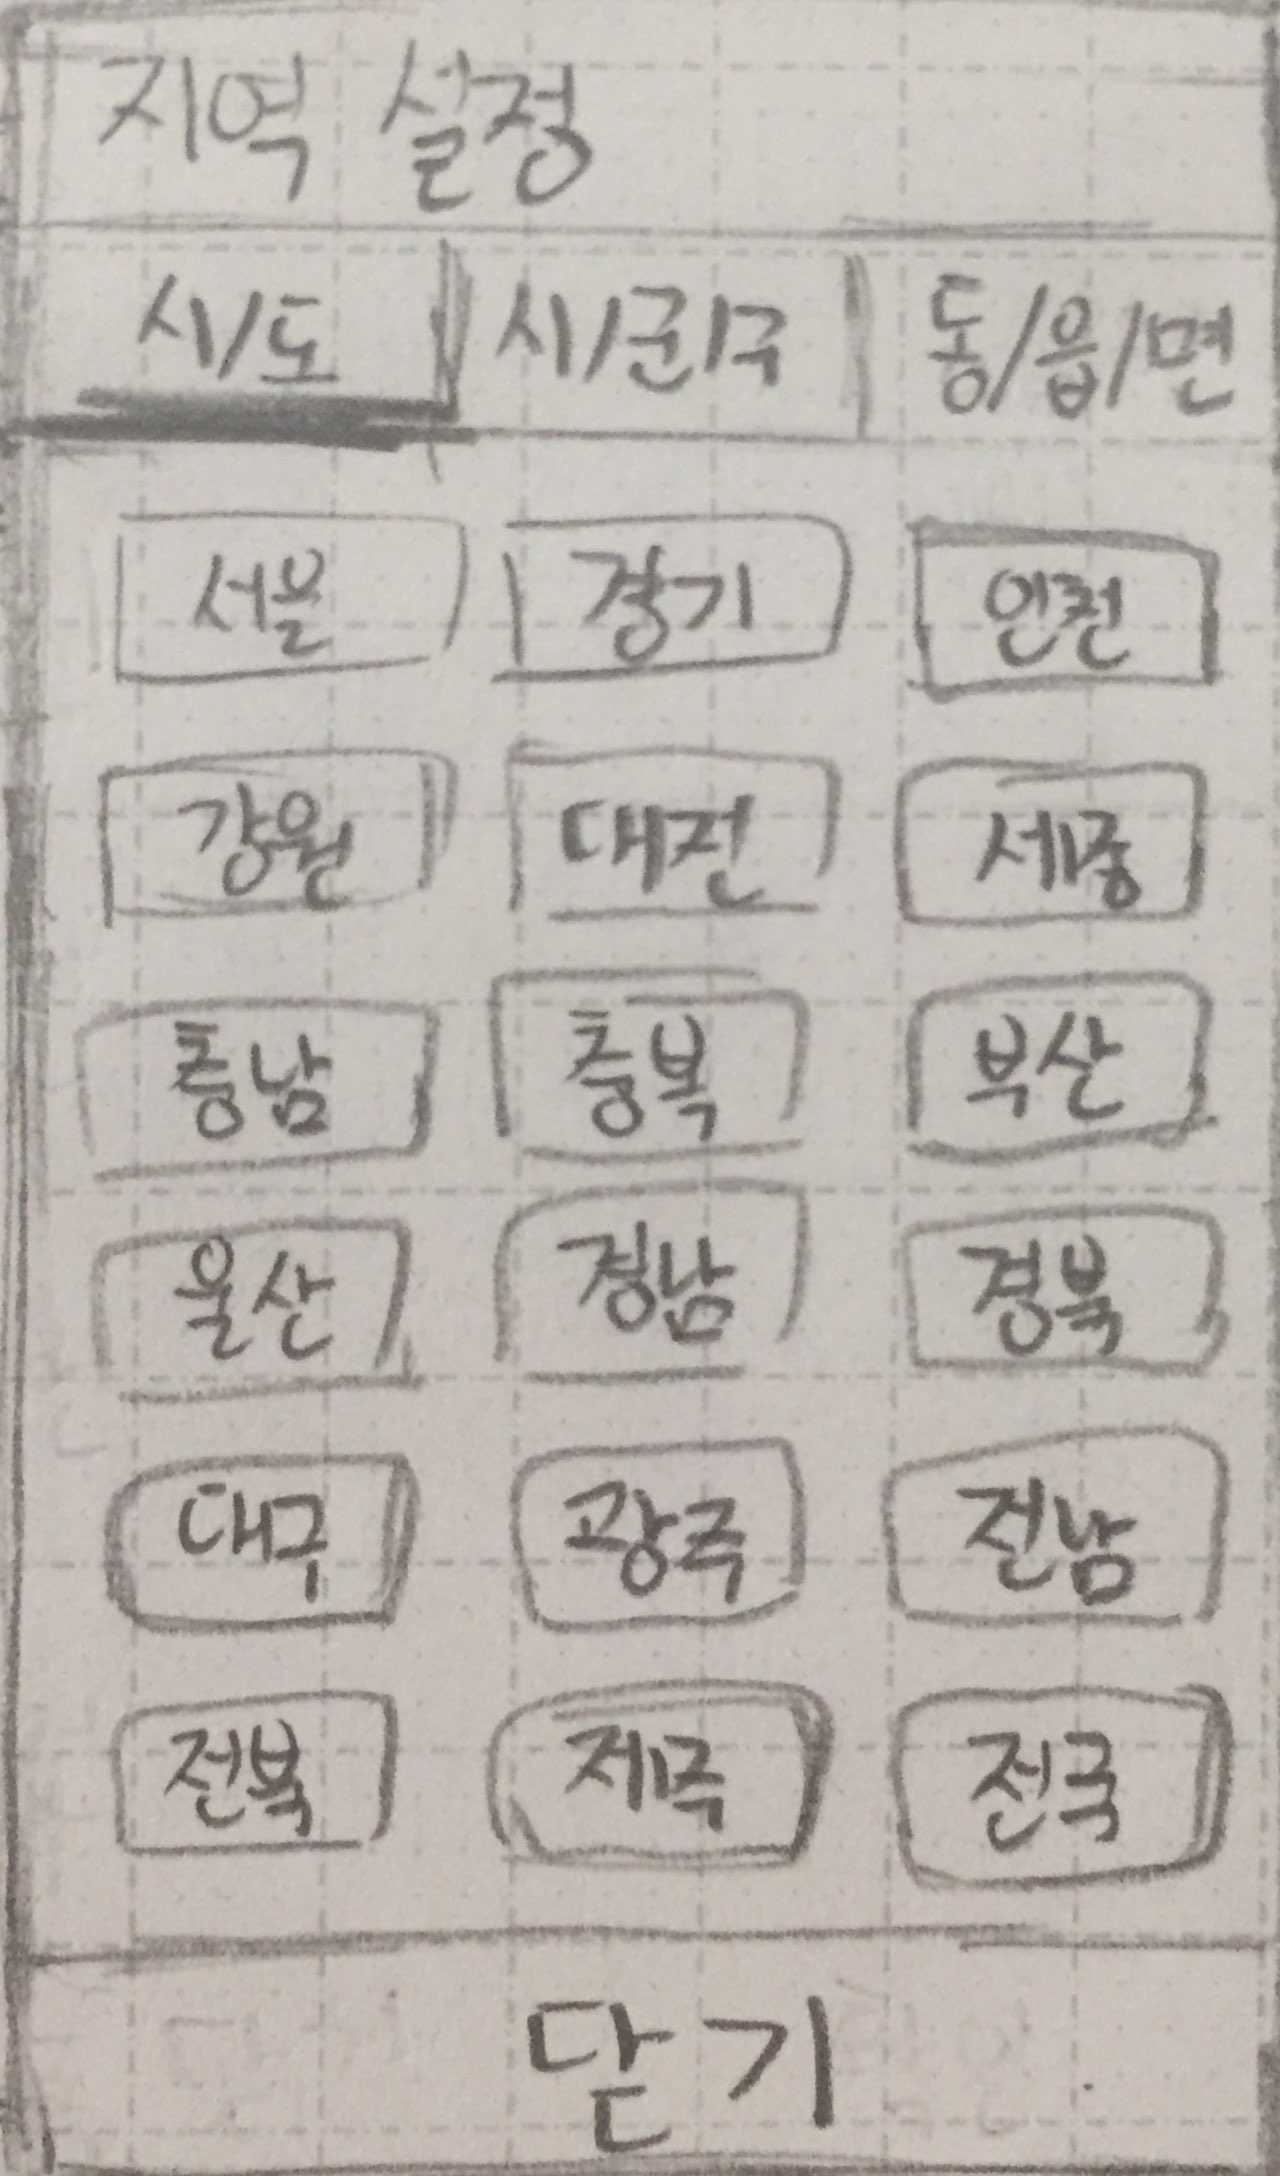 지역 설정
시/도 시/군/구 동/읍/면
서울 경기 인천
강원 대전 세종
충남 충북 부산
울산 경남 경북
대구 광주 전남
전북 제주 전국
닫기